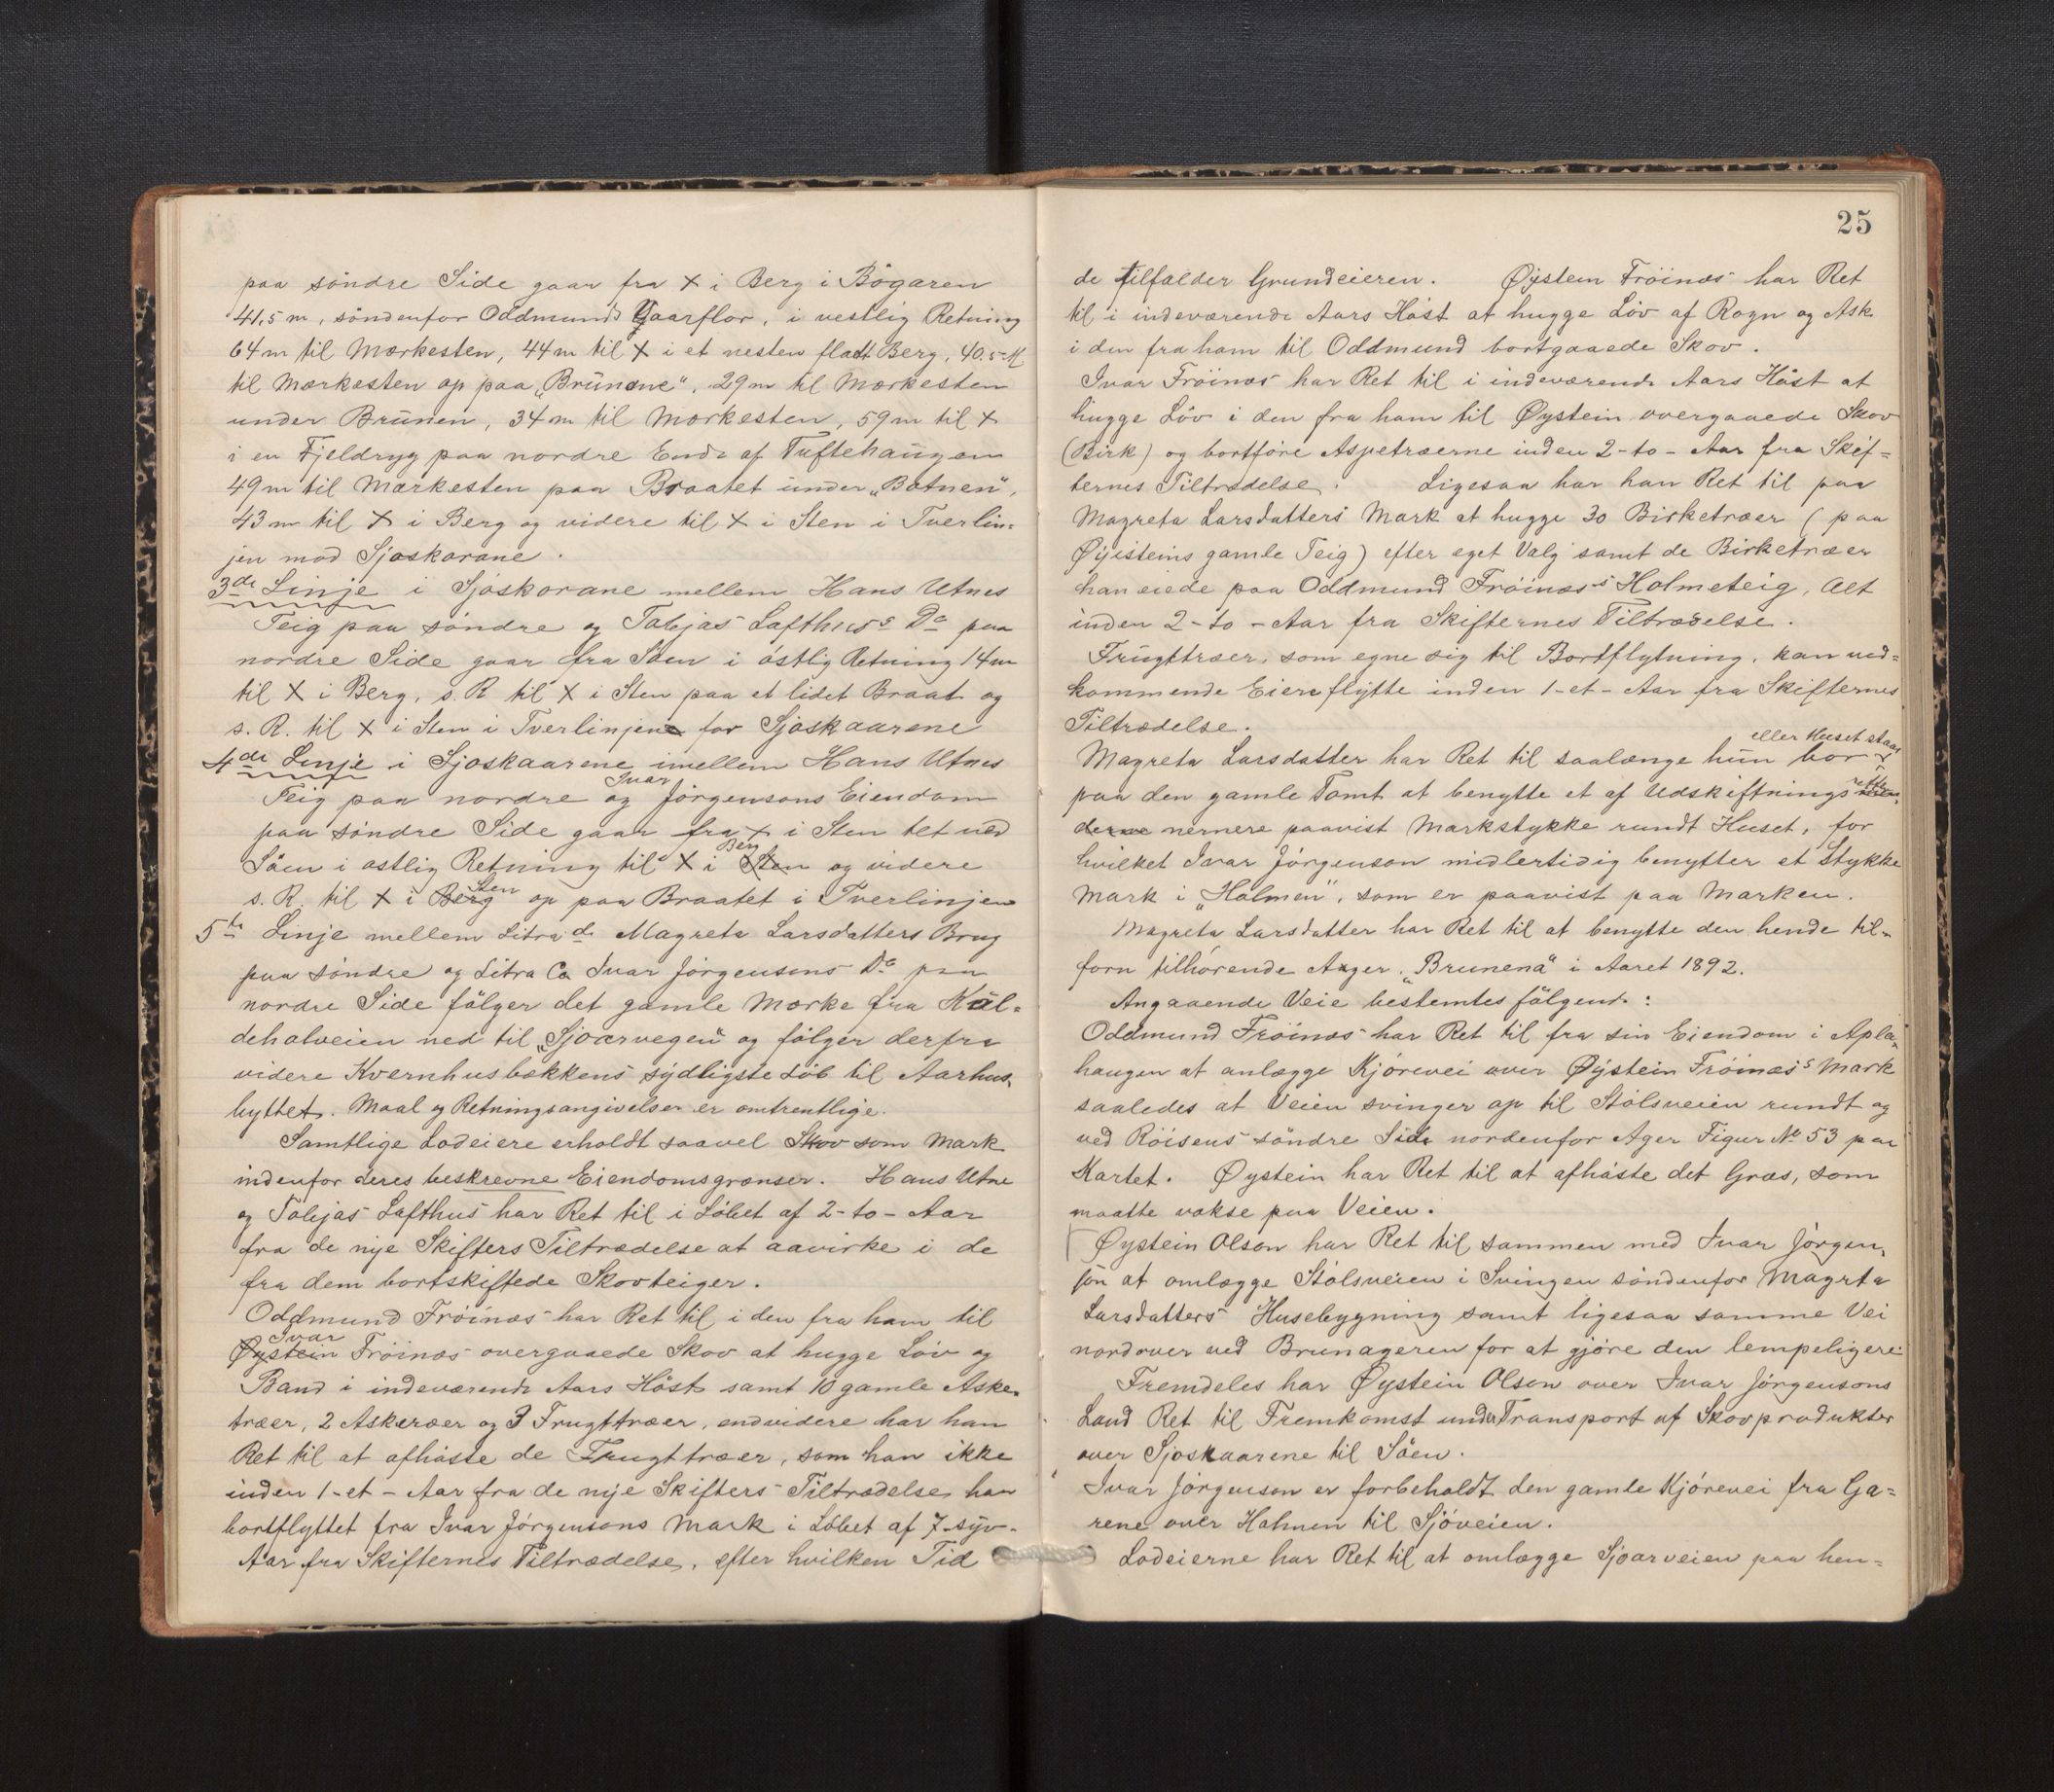 paa söndre Side gaar fra X i Berg i Bögaren
41,5 m, söndenfor Oddmunds Gaarflor, i vestlig Retning
64 m til Mærkesten, 44 m til X i et nesten fladt Berg, 40.5 M
til Mærkesten op paa „Brŭnene", 29 m til Mærkesten
under Brŭnen, 34 m til Mærkesten, 59 m til X
i en Fjeldryg paa nordre Ende af Tuftehaŭgen
49 m til Mærkesten paa Braatet ŭnder „Botnen",
43 m til X i Berg og videre til X i Sten i Tverlin=
jen mod Sjoskorane.
3de Linje i Sjoskorane mellem Hans Utnes
Teig paa söndre og Tobjas Lofthus's Do paa
nordre Side gaar fra Söen i östlig Retning 14 m
til X i Berg, s. R. til X i Sten paa et lidet Braat og
s. R. til X i Sten i Tverlinjen for Sjoskaarene
4de Linje i Sjoskaarene imellem Hans Utnes
Teig paa nordre og Ivar Jörgensons Eiendom
paa söndre Side gaar fra X i Sten tet ved
Söen i östlig Retning til X i Sten Berg og videre
s. R. til X i Berg Sten op paa Braatet i Tverlinjen
5te Linje mellem Litra d. Magreta Larsdatters Brug
paa söndre og Litra Ca Ivar Jörgensons Do paa
nordre Side fölger det gamle Mærke fra Käl=
deholveien ned til „Sjoarvegen" og fölger derfra
videre Kvernhusbækkens sydligste Löb til Aarhus-
hyttet. Maal og Retningsangivelser er omtrentlige.
Samtlige Lodeiere erholdt saavel Skov som Mark
indenfor deres beskrevne Eiendomsgrænser. Hans Utne
og Tobjas Lofthus har Ret til i Löbet af 2-to-Aar
fra de nye Skifters Tiltrædelse at aavirke i de
fra dem bortskiftede Skovteiger.
Oddmund Fröinæs har Ret til i den fra ham til
Øystein Ivar Fröinæs overgaaede Skov at hugge Löv og
Band i indeværende Aars Höst samt 10 gamle Aske-
træer, 2 Askeræer og 3 Frugttræer, endvidere har han
Ret til at afhöste de Frugttræer, som han ikke
inden 1-et-Aar fra de nye Skifters Tiltrædelse har
bortflyttet fra Ivar Jörgensons Mark i Löbet af 7-syv-
Aar fra Skifternes Tiltrædelse, efter hvilken Tid
25
de tilfalder Grundeieren. Øystein Fröinæs har Ret
til i indeværende Aars Höst at hugge Löv af Rogn og Ask
i den fra ham til Oddmund bortgaaede Skov.
Ivar Fröinæs har Ret til i indeværende Aars Höst at
hugge Löv i den fra ham til Øystein overgaaede Skov
(Birk) og bortföre Aspetræerne inden 2-to-Aar fra Skif=
ternes Tiltrædelse. Ligesaa har han Ret til paa
Magreta Larsdatters Mark at hugge 30 Birketræer (paa
Øyisteins gamle Teig) efter eget Valg samt de Birketræer
han eiede paa Oddmund Fröinæs's Holmeteig, Alt
inden 2-to-Aar fra Skifternes Tiltrædelse.
Frugttræer, som egne sig til Bortflytning, kan ved=
kommende Eiere flytte inden 1-et-Aar fra Skifternes
Tiltrædelse.
Magreta Larsdatter har Ret til saalænge hŭn bor eller Huset staar
paa den gamle Tomt at benytte et af Udskiftnings retten
derne nermere paavist Markstykke rundt Huset, for
hvilket Ivar Jörgenson midlertidig benytter et Stykke
Mark i „Holmen", som er paavist paa Marken.
Magreta Larsdatter har Ret til at benytte den hende til-
forn tilhörende Ager „Brunenä" i Aaret 1892.
Angaaende Veie bestemtes fölgende:
Oddmund Fröinæs har Ret til fra sin Eiendom i Apla-
haugen at anlægge Kjörevei over Øystein Fröinæs's Mark
saaledes at Veien svinger op til Stölsveien rundt og
ved Röisens söndre Side nordenfor Ager Figur No 53 paa
Kartet. Øystein har Ret til at afhöste det Græs, som
maatte vokse paa Veien.
Øystein Olson har Ret til sammen med Ivar Jörgen-
son at omlægge Stölsveien i Svingen söndenfor Magreta
Larsdatters Husebygning samt ligesaa samme Vei
nordover ved Brunageren for at gjöre den lempeligere
Fremdeles har Øystein Olson over Ivar Jörgensons
Land Ret til Fremkomst under Transport af Skovprodukter
over Sjoskaarene til Söen.
Ivar Jörgenson er forbeholdt den gamle Kjörevei fra Ga=
rene over Holmen til Sjöveien.
Lodeierne har Ret til at omlægge Sjoarveien paa hen=